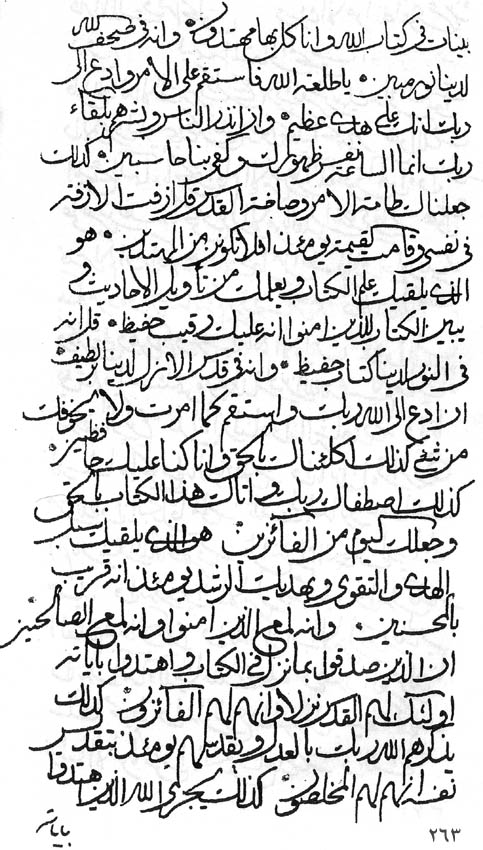 بينات في كتاب الله وانا كل بها مهتدون وانه في صحف الله
لدينا نور مبين يا طلعة الله فاستقم على الامر وادع الى
ربك انك على هدى عظيم وان انذر الناس وبشرهم بلقاء
ربك انما الساعة نفس ظهورك وكفى بنا حاسبين كذلك
جعلناك طامة الامر وصاخة القدر قل ازفت الازفة
في نفسي وقامت القيمة يومئذ افلا تكونن من المهتدين هو
الذي يلقيك علم الكتاب ويعلمك من تأويل الاحاديث و
يبين الكتاب للذين امنوا انه عليك رقيب حفيظ قل انه
في النور لدينا كتاب حفيظ وانه في قدس الانزل لدينا لطيف
ان ادع الى الله ربك واستقم كما امرت ولا يخوفنك
من شيء كذلك اكلئناك بالحق وانا كنا عليك حافظين
كذلك اصطفاك ربك واتاك هذا الكتاب بالحق
وجعلك اليوم من الفائزين هو الذي يلقيك سبل
الهدى والتقوى ويهديك الرشد يومئذ انه قريب
بالمحسنين وانه لمع الذين امنوا وانه لمع الصالحين
ان الذين صدقوا بما نزل في الكتاب واهتدوا باياته
اولئك لهم القدس نزلا وانهم لهم الفائزون كذلك
يذكرهم الله ربك بالعدل ويقدسهم يومئذ بتقديس
نفسه انهم لهم المخلصون كذلك يجزي الله الذين اهتدوا
باياته
٢٦٣